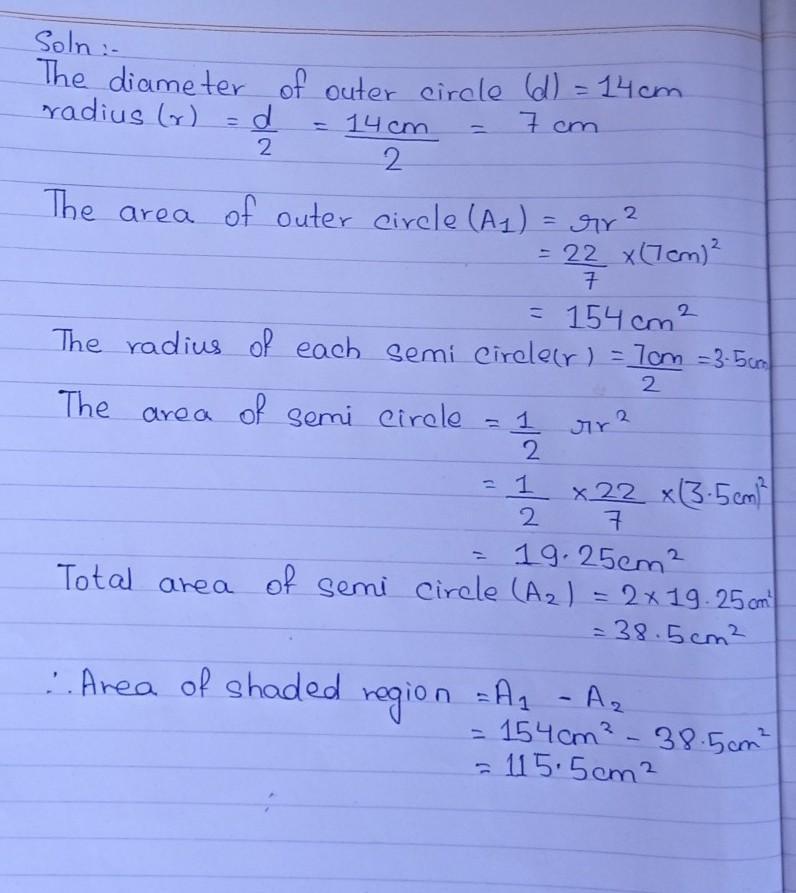 Soln :-
The diameter of outer circle (d) = 14cm
radius (r) = d/2 = 14cm/2 = 7 cm
The area of outer circle (A1) = πr²
= 22/7 × (7cm)²
= 154cm²
The radius of each semi circle(r) = 7cm/2 = 3.5cm
The area of semi circle = 1/2 πr²
= 1/2 × 22/7 × (3.5cm)²
= 19.25cm²
Total area of semi circle (A2) = 2×19.25cm²
= 38.5cm²
∴ Area of shaded region = A1 - A2
= 154cm² - 38.5cm²
= 115.5cm²